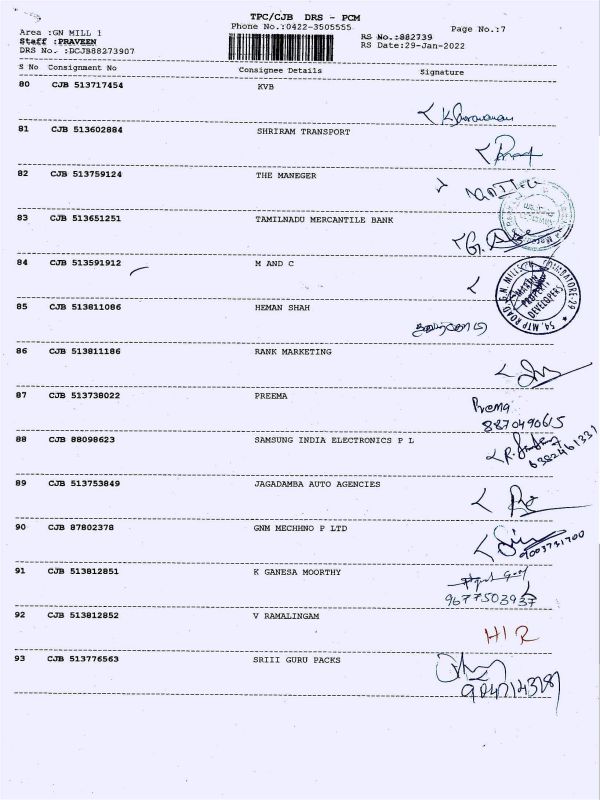 TPC/CJB DRS - PCM
Area :GN MILL 1
Phone No.:0422-3505555
Page No.:7
Staff :PRAVEEN
RS No.:882739
DRS No. :DCJB88273907
RS Date:29-Jan-2022
S No Consignment No Consignee Details Signature
80 CJB 513717454 KVB
81 CJB 513602884 SHRIRAM TRANSPORT
82 CJB 513759124 THE MANEGER
83 CJB 513651251 TAMILNADU MERCANTILE BANK
84 CJB 513591912 M AND C
54, MTP ROAD, G.N. MILLS, COIMBATORE-29
MARTIN PROPERTY DEVELOPERS
85 CJB 513811086 HEMAN SHAH
86 CJB 513811186 RANK MARKETING
87 CJB 513738022 PREEMA
Prema
8870490615
88 CJB 88098623 SAMSUNG INDIA ELECTRONICS P L
6382461331
89 CJB 513753849 JAGADAMBA AUTO AGENCIES
90 CJB 87802378 GNM MECHHNO P LTD
9003731700
91 CJB 513812851 K GANESA MOORTHY
9677503937
92 CJB 513812852 V RAMALINGAM
HIR
93 CJB 513776563 SRIII GURU PACKS